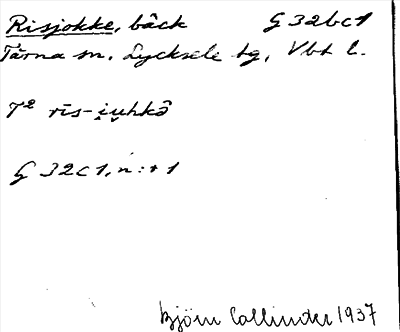 Risjokke, bäck G 32bc1
Tärna sn, Lycksele tg, Vbt l.
7² rīs-i̯u̯hkō̂
G 32c1, n:r 1
Björn Collinder 1937